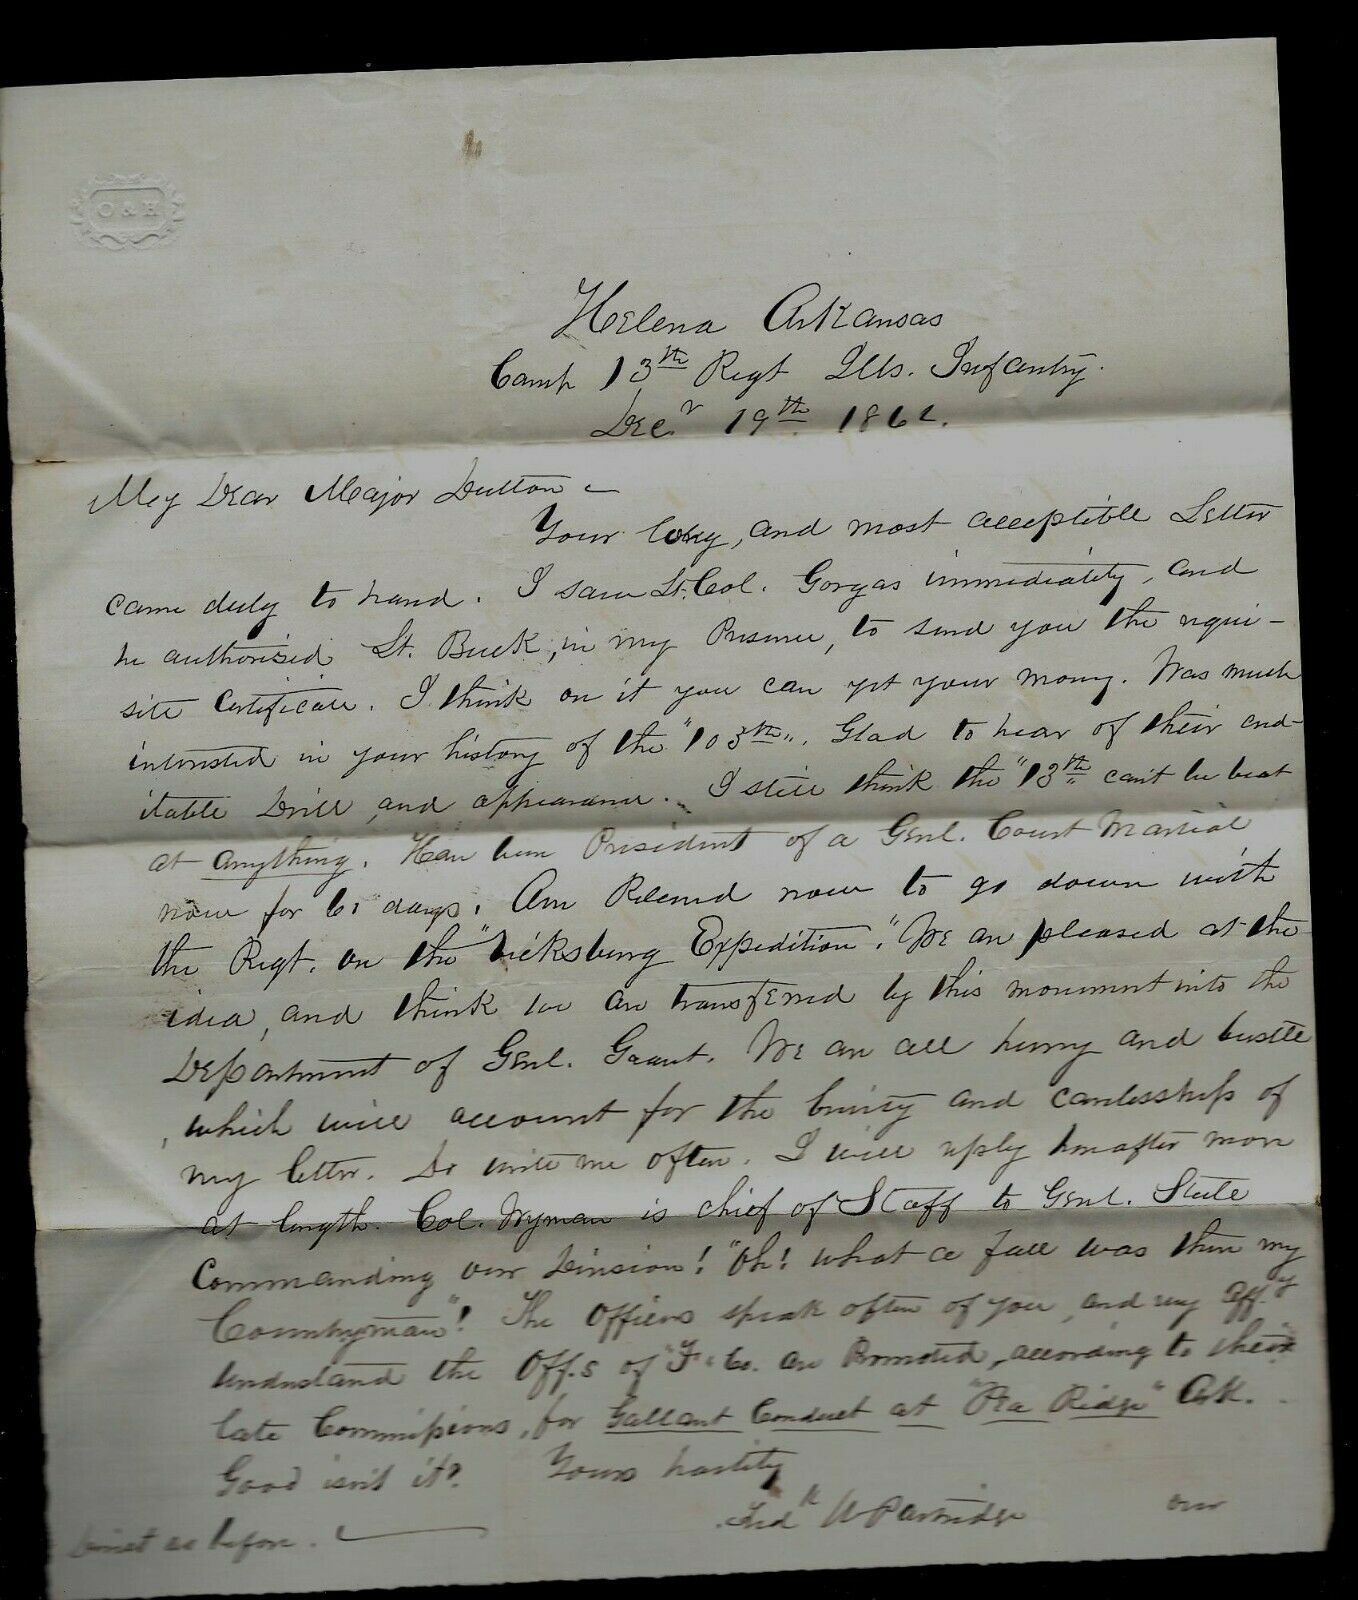 O & H
Helena Arkansas
Camp 13th Regt Ills. Infantry.
Decr 19th 1862.
My Dear Major Dutton –
Your long, and most acceptible Letter
came duly to hand. I saw Lt. Col. Gorgas immediately, and
he authorised Lt. Buck, in my Presence, to send you the requi-
site Certificate. I think on it you can get your money. Was much
interested in your history of the "103th". Glad to hear of their cred-
itable Drill, and appearance. I still think the "13th" can't be beat
at anything. Have been President of a Genl. Court Martial
now for 61 days. Am Relieved now to go down with
the Regt. on the "Vicksburg Expedition". We are pleased at the
idea, and think we are transferred by this movement into the
Department of Genl. Grant. We are all hurry and bustle
, which will account for the brevity and carelessship of
my letter. Do write me often. I will reply hereafter more
at length. Col. Wyman is chief of Staff to Genl. Steele
Commanding our Division! "Oh! what a fall was then my
Countryman"! The Officers speak often of you, and very affy
understand the Offs of "F" Co. are Promoted, according to their
late Commissions, for Gallant Conduct at "Pea Ridge" Ark.
Good isn't it? Yours heartily
Fredk W Partridge over
Direct as before.